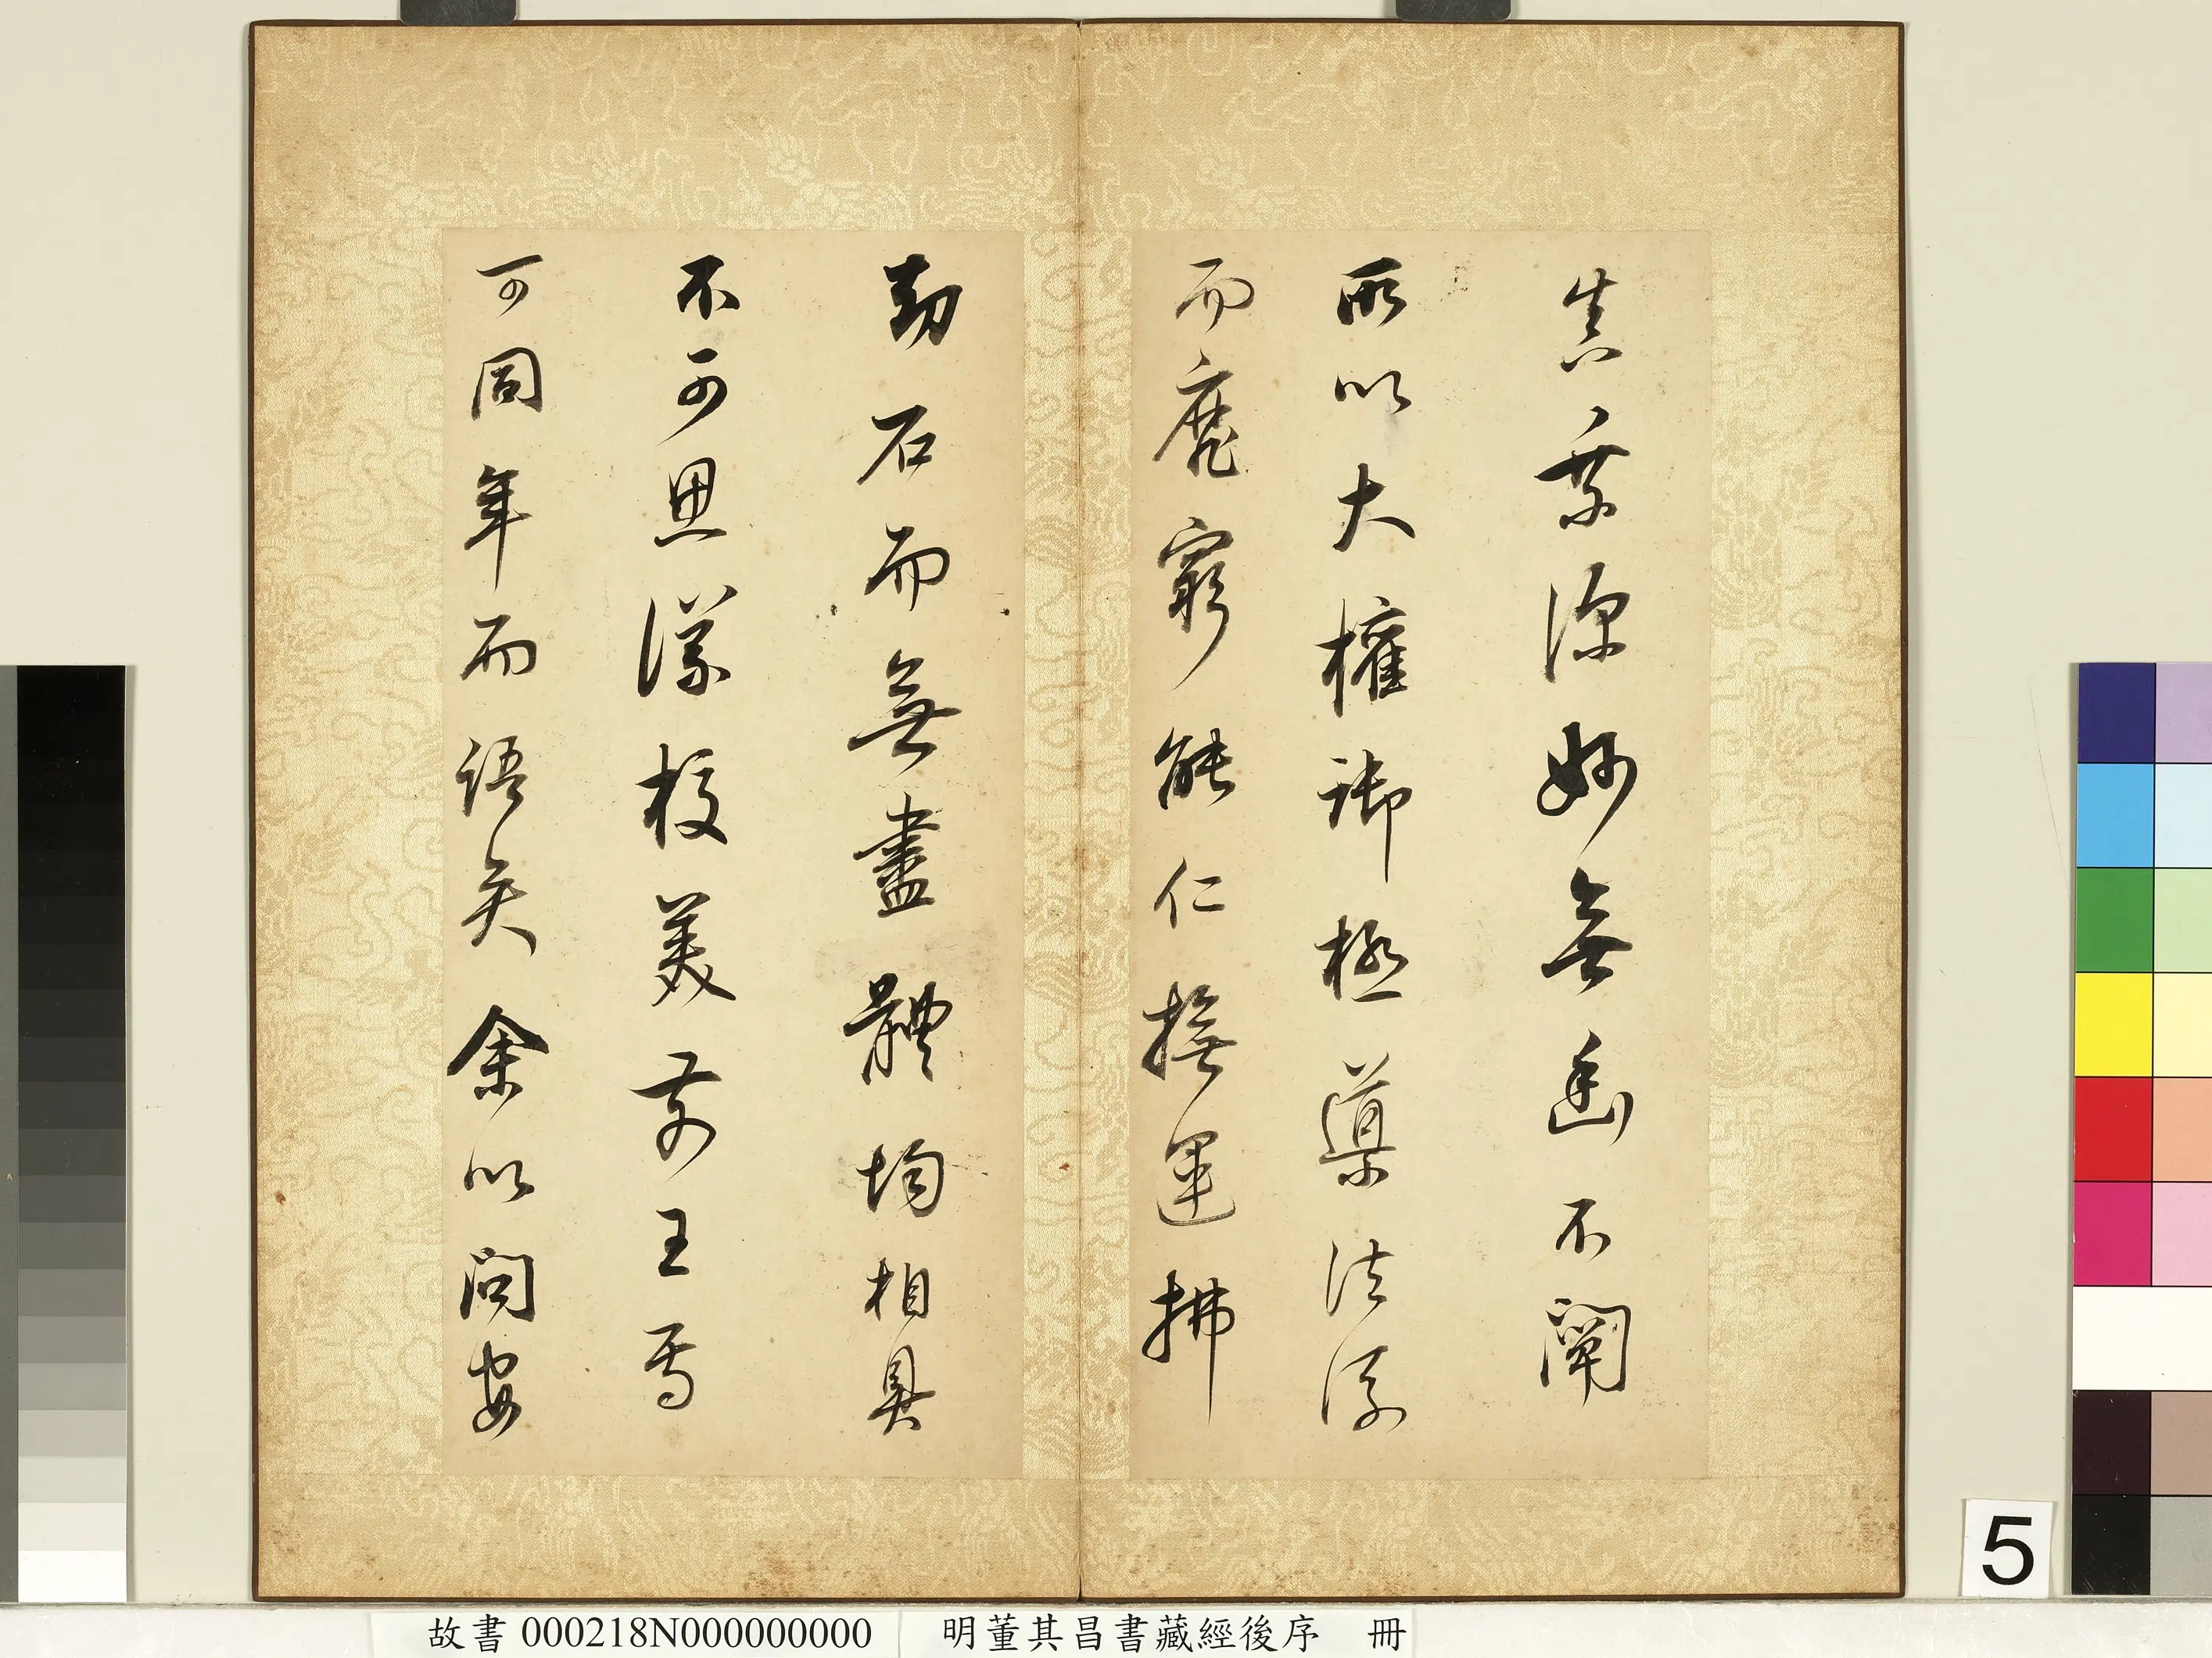 真乘深妙無幽不闡
所以大權御極導法流
而靡窮能仁撫運拂
劫石而無盡體均相具
不可思議校美前王焉
可同年而語矣余以問安
5
故書000218N000000000 明董其昌書藏經後序 冊